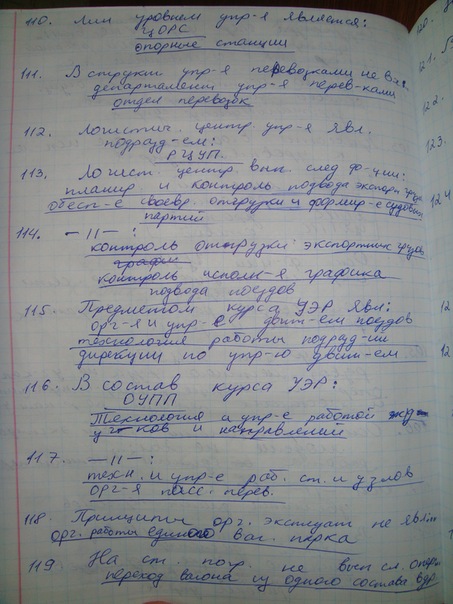 110. Лин уровнем упр-я является:
ЦОРС
опорные станции
111. В структ упр-я перевозками не вх:
департамент упр-я перев-ками
отдел перевозок
112. Логистич. центр. упр-я явл.
подразд-ем:
РЦУП.
113. Логист. центр. вып. след. ф-ции:
планир и контроль подвода экспорт груза
обесп-е своевр. отгрузки и формир-е судовых
партий
114. —॥— :
контроль отгрузки экспортных грузов
график
контроль исполн-я графика
подвода поездов
115. Предметом курса УЭР явл:
орг-я и упр-е движ-ем поездов
технология работы подразд-ий
дирекции по упр-ю движ-ем
116. В состав курса УЭР:
ОУПП
Технология и упр-е работой жд
уч-ков и направлений
117. —॥— :
техн. и упр-е раб. ст. и узлов
орг-я пасс. перев.
118. Принципы орг. эксплуат не явл
орг. работы единого ваг. парка
119 На ст. погр. не вып сл. опер.
переход вагона из одного состава в др.
120.
121.
122.
123.
124